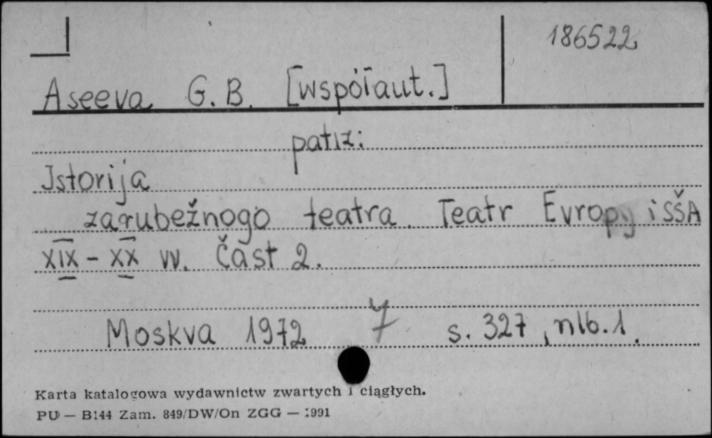 186522
Aseeva G. B. [współaut.]
patrz:
Istorija
zarubežnogo teatra. Teatr Evropy i SŠA
XIX - XX vv. Čast 2.
Moskva 1972 7 s. 327, nlb. 1.
Karta katalogowa wydawnictw zwartych i ciągłych.
PU — B144 Zam. 849/DW/On ZGG — 1991